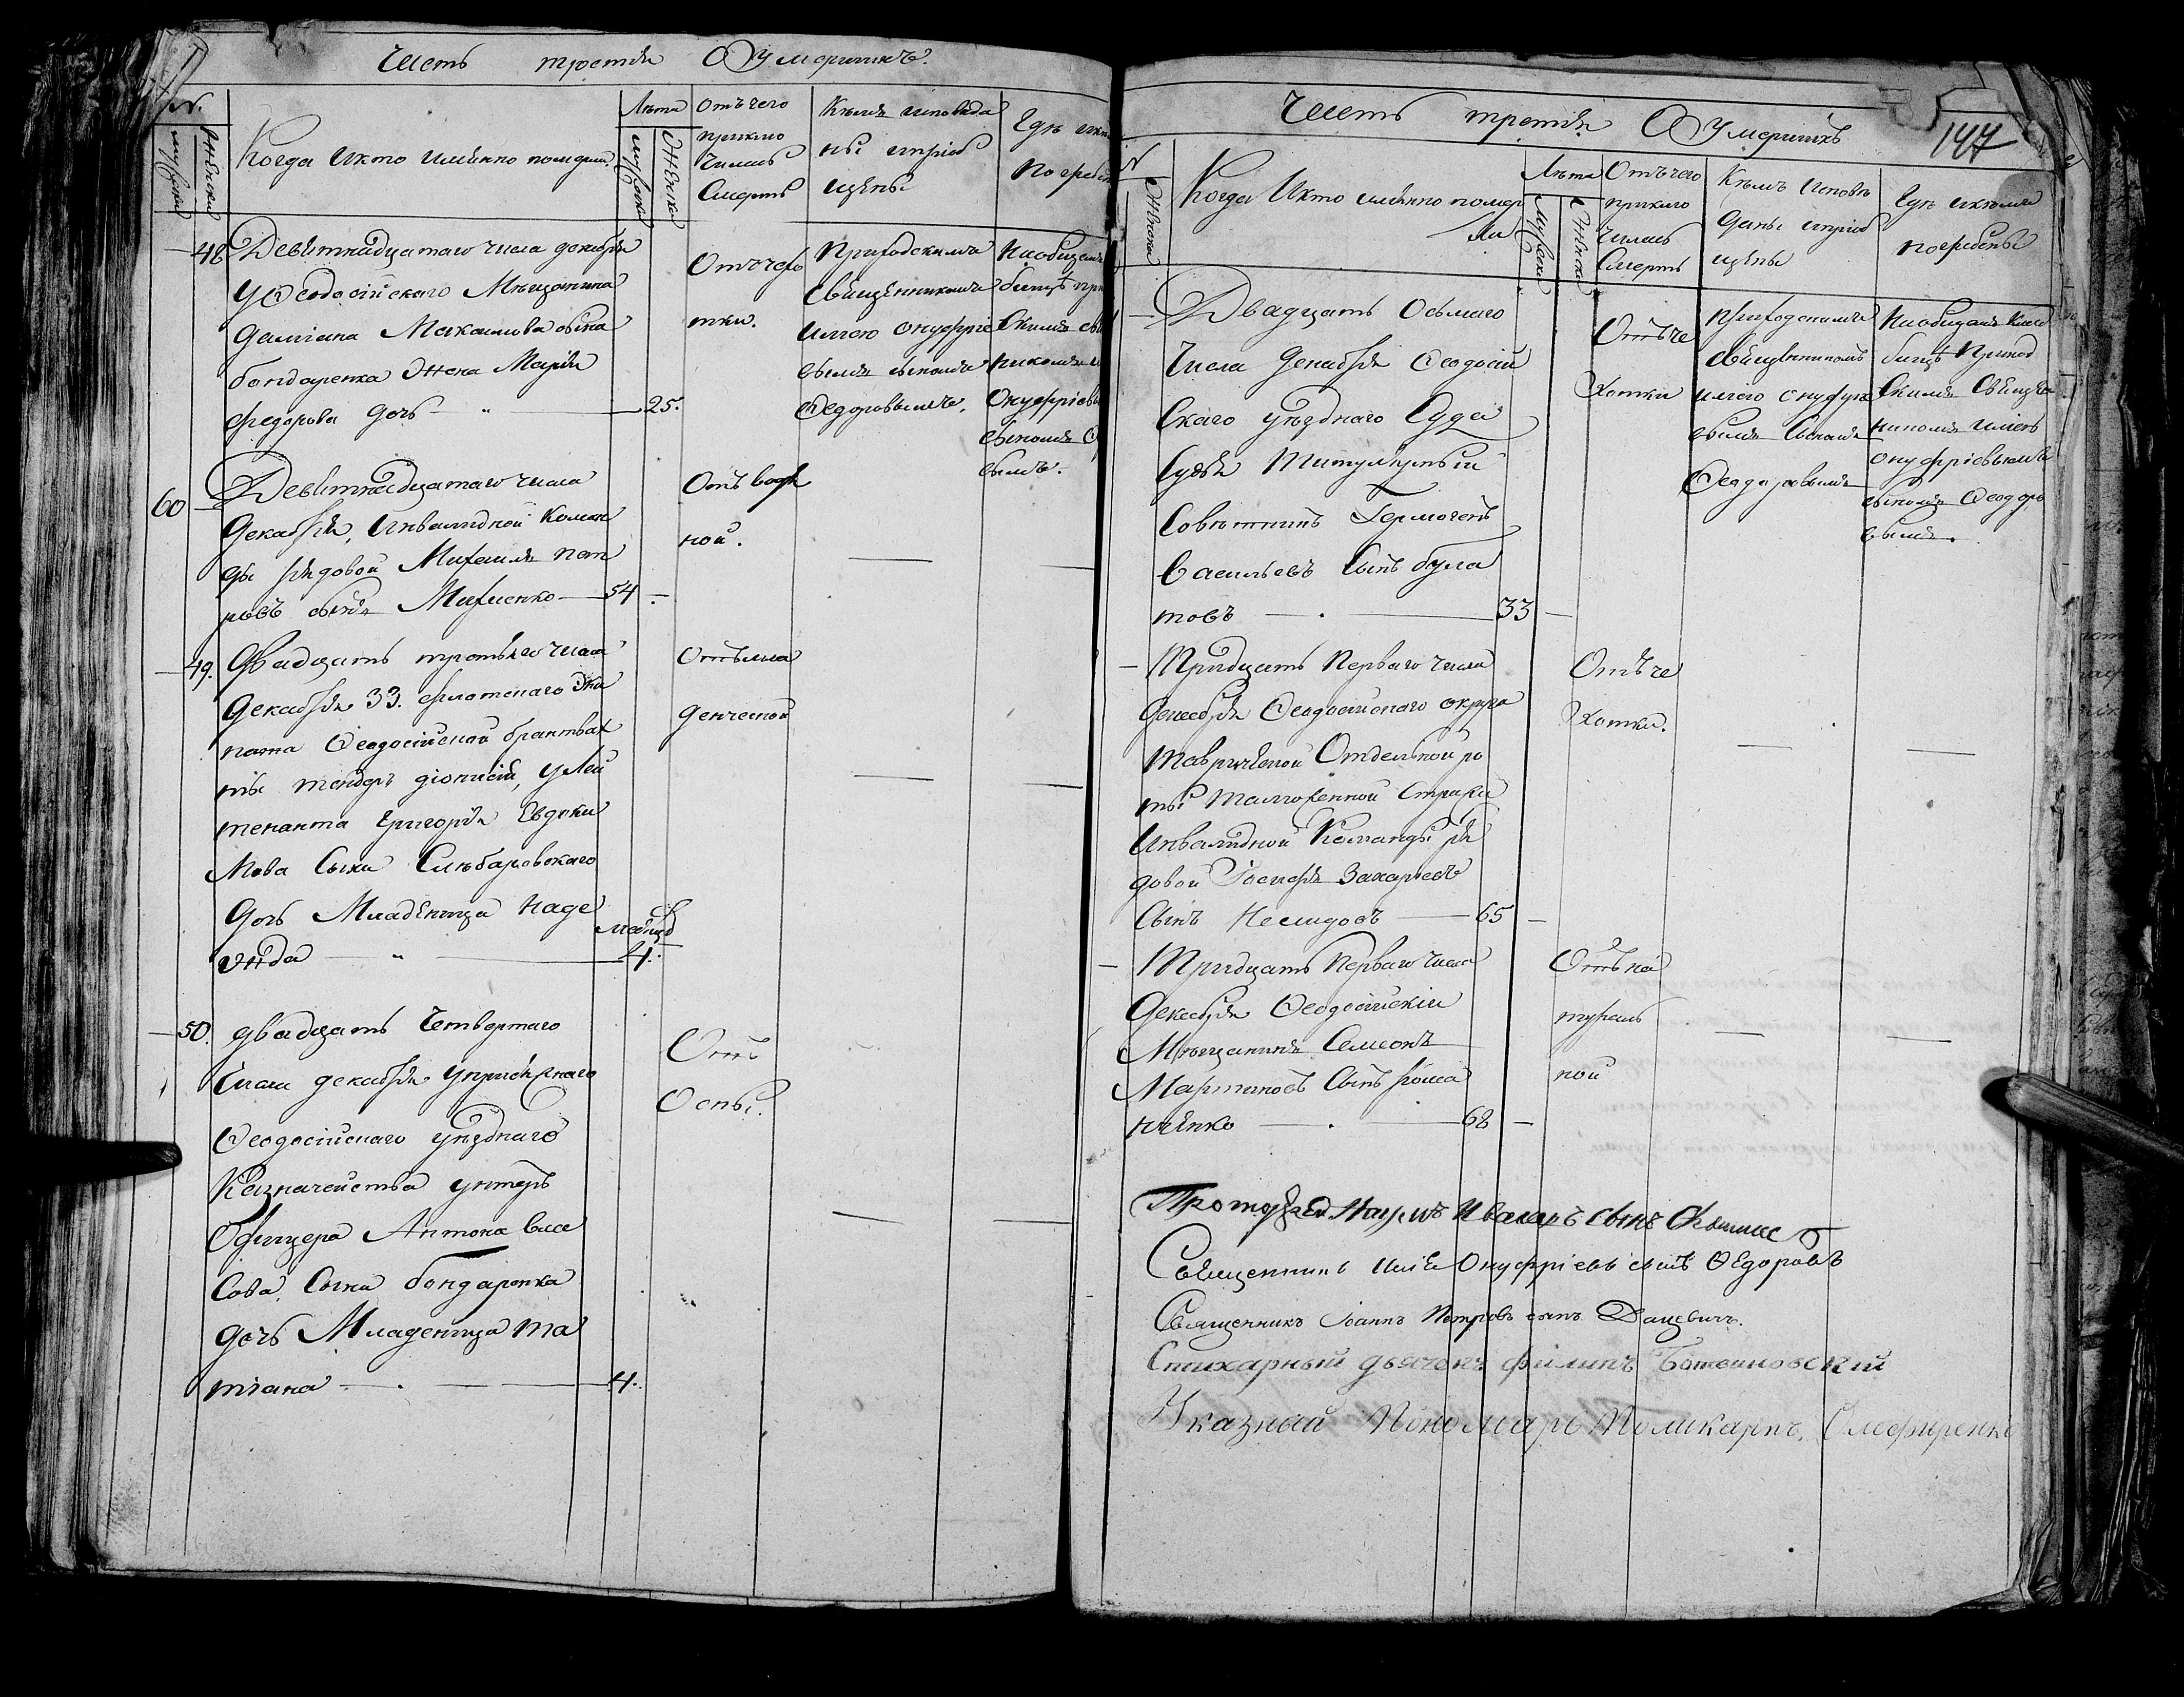 Часть третья О Умершихъ.
№.
мужеска
женска
Когда икто имянно померли.
Лета
мужеска
женска
Отъ чего
приклю
чилась
Смерть
Кемъ исповеда
ны иприоб
щены
Где
погребен
48 Девятнадцатаго числа декабря
у Ѳеодосійскаго Мещанина
Даміана Максимова сына
бондаренка Жена Марія
федорова дочь — 25.
Отъ чехо
тки.
Приходскимъ
священникомъ
Илиею Онуфріе
вымъ сыномъ
Ѳедоровымъ.
Наобщемъ
Онуфріевы
сыномъ
вымъ.
60 Девятнадцатаго числа
Декабря, Инвалидной Коман
ды рядовой Михаилъ пет
ровъ сынъ — 54 —
Отъ водя
ной.
49. Двадцать третьяго числа
Декабря 33. флотскаго Эки
пажа Ѳеодосійской брантвах
ты тендеръ діонисій, у Лей
тенанта Григорія Евдоки
мова Сына
Дочь Младеница Наде
жда — месяцъ 4.
Отъ мла
денческой
50. двадцать Четвертаго
Числа декабря
Ѳеодосійскаго уезднаго
Казначейства унтеръ
Офицера Антона Влас
Сова Сына бондаренка
дочь Младеница та
тіана — 4.
Отъ
Оспы.
Часть третья О Умершихъ
147
№
женска
Когда Икто имянно помер
ли
Лета
Мужеска
Женска
Отъ чего
приклю
чилась
Смерть
Кемъ Исповѣ
даны иприоб
щены
Где икемъ
погребены
Двадцать Осьмаго
Числа Декабря Ѳеодосій
Скаго уезднаго Суда
Судья Титулярный
Советникъ Гермогенъ
Васильевъ Сынъ була
товъ — 33 —
Отъ че
хотки
приходскимъ
священникомъ
илиею онуфріе
вымъ Сыномъ
Ѳеодоровымъ
Наобщемъ Клад
бище Приход
Скимъ Священ
никомъ илиею
онуфріевымъ
сыномъ Ѳеодоро
вымъ.
Тридцать Перваго числа
Декабря Ѳеодосійскаго округа
Таврической Отдельной ро
ты таможенной Стражи
Инвалидной Команды ря
довой Захарьевъ
Сынъ — 65 —
Отъ че
хотки.
Тридцать Перваго числа
Декабря Ѳеодосійскій
Мещанинъ Семеонъ
Мартиновъ Сынъ Рома
ненко — 68 —
Отъ на
тураль
ной
Ивановъ сынъ
Священникъ Илія Онуфріевъ сынъ Ѳедоровъ
Священникъ Іоаннъ Петровъ сынъ Дацевичъ.
Стихарный дьячекъ филипъ
Указный Пономарь Поликарпъ. Олефиренко